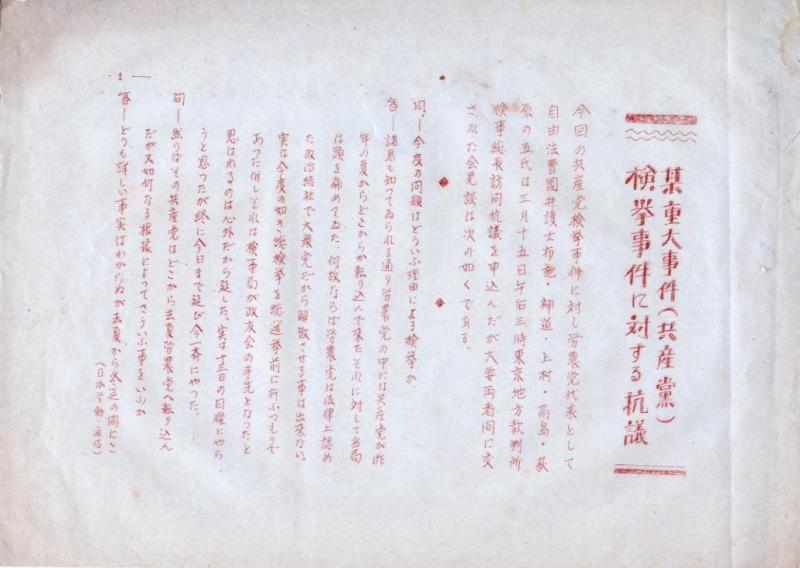 某重大事件(共産黨)
検挙事件に対する抗議
今回の共産党検挙事件に対し労農党代表として
自由法曹團弁護士布施・神道・上村・高島・萩
原の五氏は三月十五日午后三時東京地方裁判所
検事総長訪问抗議を申込んだが大要両者间に交
された会見談は次の如くである。
问、―今度の问題はどういふ理由による検挙か、
答―諸君も知つてゐられる通り労農党の中には共産党が昨
年の夏からどこからか転り込んで来たそれに対して当局
は頭を痛めてゐた、何故ならば労農党は法律上認め
た政治結社で大衆党だから解散させる事は出来ない。
実は今度の如き総検挙を総選挙前に行ふつもりで
あつた併しそれは検事局が政友会の手先となつたと
思はれるのは心外だから延した、実は十三日の日曜にやら
うと思つたが終に今日まで延び今一斉にやつた、
问―然らばその共産党はどこから去夏労農党へ転り込ん
だか又如何なる根據によつてさういふ事をいふか
答―どうも詳しい事実はわからぬが去夏から今迄の间にさ
(日本労働通信)
― 1